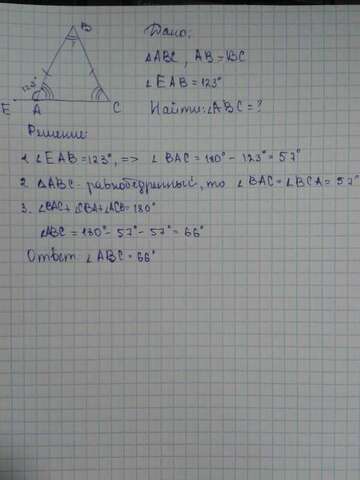 B
?
123°
E
A
C
Дано:
△ABC, AB = BC
∠EAB = 123°
Найти: ∠ABC = ?
Решение:
1. ∠EAB = 123°, => ∠BAC = 180° - 123° = 57°
2. △ABC - равнобедренный, то ∠BAC = ∠BCA = 57°
3. ∠BAC + ∠CBA + ∠ACB = 180°
∠ABC = 180° - 57° - 57° = 66°
Ответ: ∠ABC = 66°